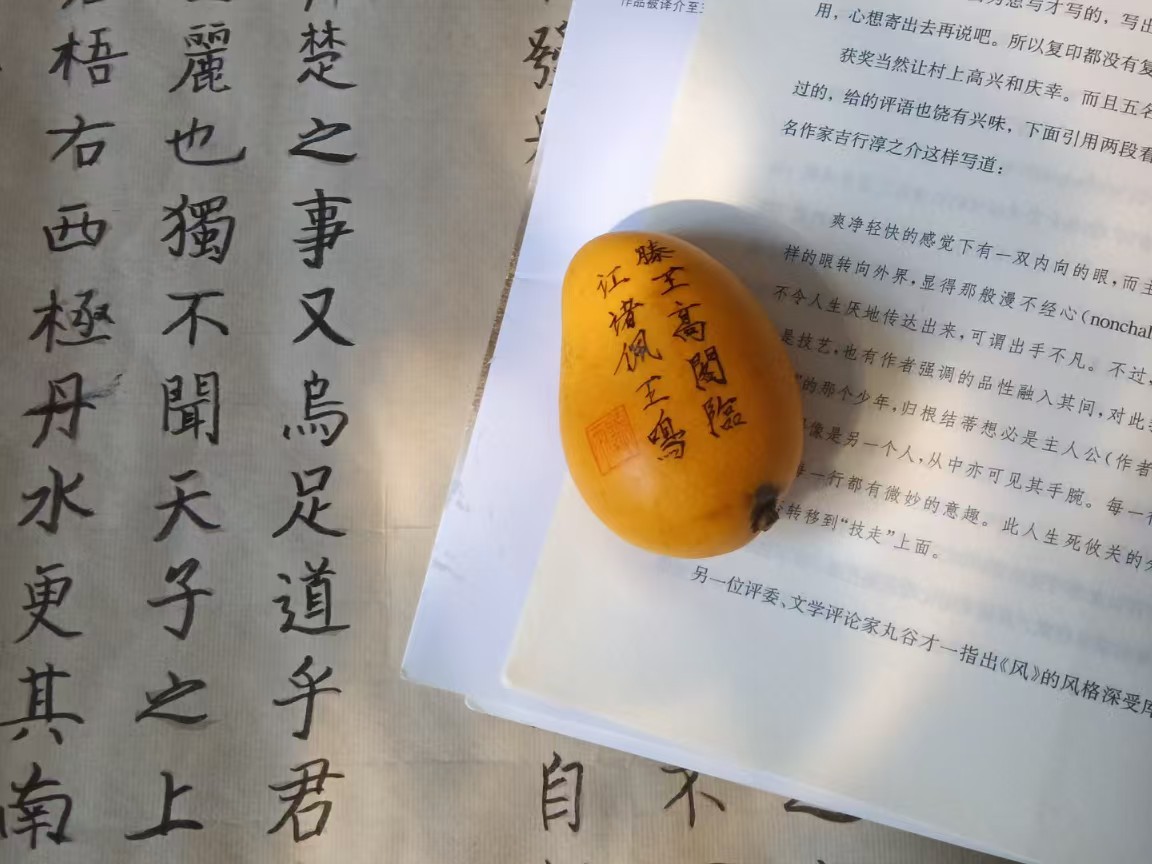 發
楚之事又烏足道乎君
麗也獨不聞天子之上
梧右西極丹水更其南
自
不
作品被译介至
想写才写的，写出
用，心想寄出去再说吧。所以复印都没有复
获奖当然让村上高兴和庆幸。而且五名
过的，给的评语也饶有兴味，下面引用两段看
名作家吉行淳之介这样写道：
爽净轻快的感觉下有一双内向的眼，而主
样的眼转向外界，显得那般漫不经心(nonchal
不令人生厌地传达出来，可谓出手不凡。不过，
是技艺，也有作者强调的品性融入其间，对此
”的那个少年，归根结蒂想必是主人公(作者
像是另一个人，从中亦可见其手腕。每一
每一行都有微妙的意趣。此人生死攸关的
转移到“技走”上面。
另一位评委、文学评论家丸谷才一指出《风》的风格深受
滕王高閣臨
江渚佩玉鳴